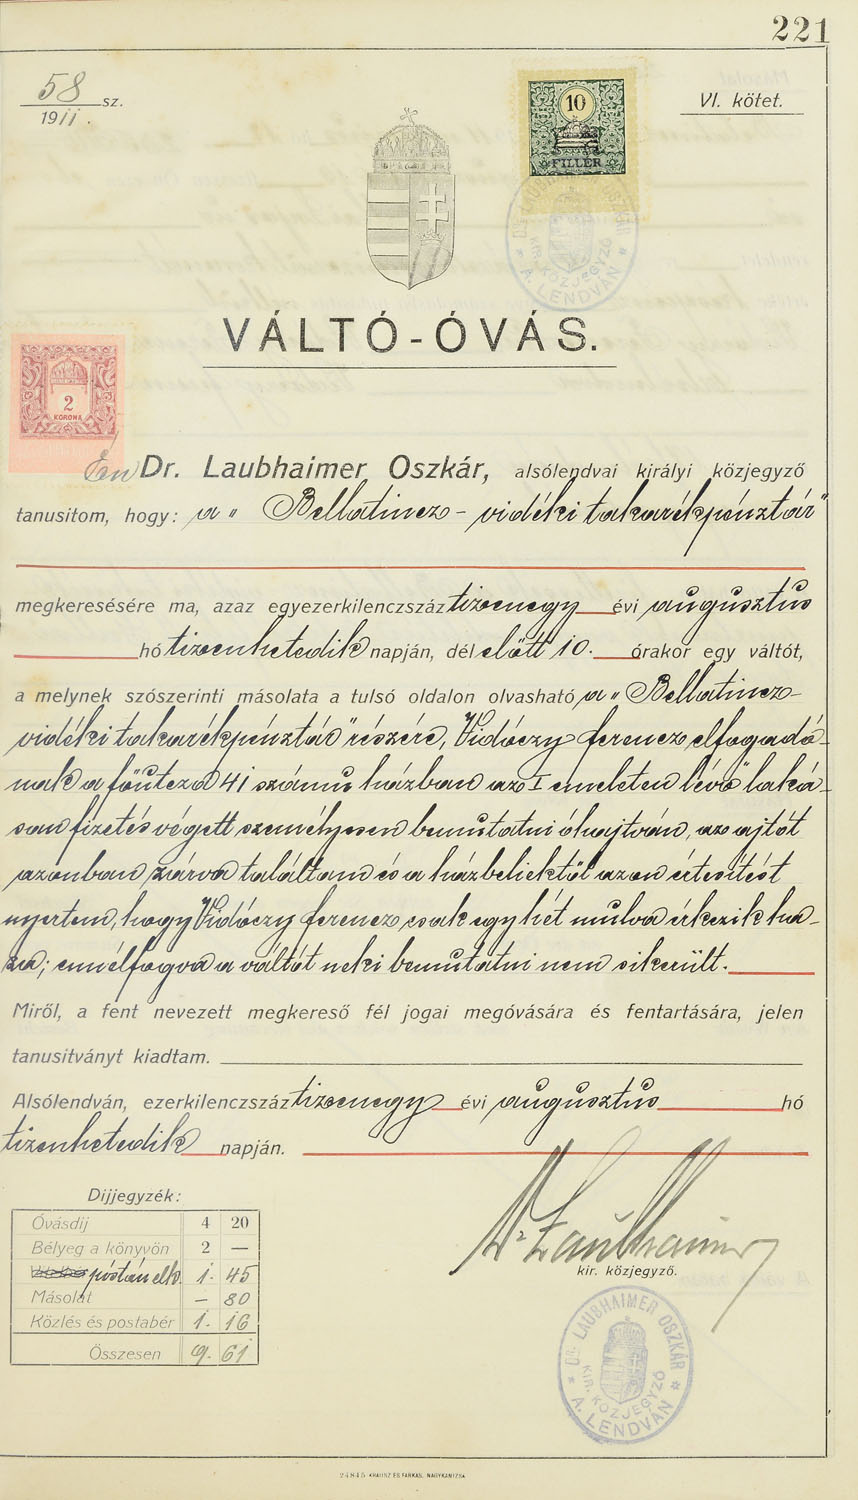 221
58 sz.
1911.
VI. kötet.
10
FILLÉR
DR LAUBHAIMER OSZKÁR
KIR. KÖZJEGYZŐ
* A. LENDVÁN *
VÁLTÓ-ÓVÁS.
2
KORONA
Én Dr. Laubhaimer Oszkár, alsólendvai királyi közjegyző
tanusitom, hogy: a „Bellatincz-vidéki takarékpénztár"
megkeresésére ma, azaz egyezerkilenczszáz tizenegy évi augusztus
hó tizenhetedik napján, dél előtt 10. órakor egy váltót,
a melynek szószerinti másolata a tulsó oldalon olvasható a „Bellatincz-
vidéki takarékpénztár" részére, Vidóczy Ferencz elfogadó-
nak a főutcza 41 számu házban az I emeleten lévő laká-
san fizetés végett személyesen bemutatni óhajtván, az ajtót
azonban zárva találtam és a házbeliektől azon értesitést
nyertem, hogy Vidóczy Ferencz csak egy hét mulva érkezik ha-
za; ennélfogva a váltót neki bemutatni nem sikerült.
Miről, a fent nevezett megkereső fél jogai megóvására és fentartására, jelen
tanusitványt kiadtam.
Alsólendván, ezerkilenczszáz tizenegy évi augusztus hó
tizenhetedik napján.
Dr Laubhaimer
kir. közjegyző.
Dijjegyzék:
Óvásdij 4 20
Bélyeg a könyvön 2 —
póstán elk. 1. 45
Másolat — 80
Közlés és postabér 1. 16
Összesen 9. 61
DR LAUBHAIMER OSZKÁR
KIR. KÖZJEGYZŐ
* A. LENDVÁN *
24845 KRAUSZ ÉS FARKAS, NAGYKANIZSA